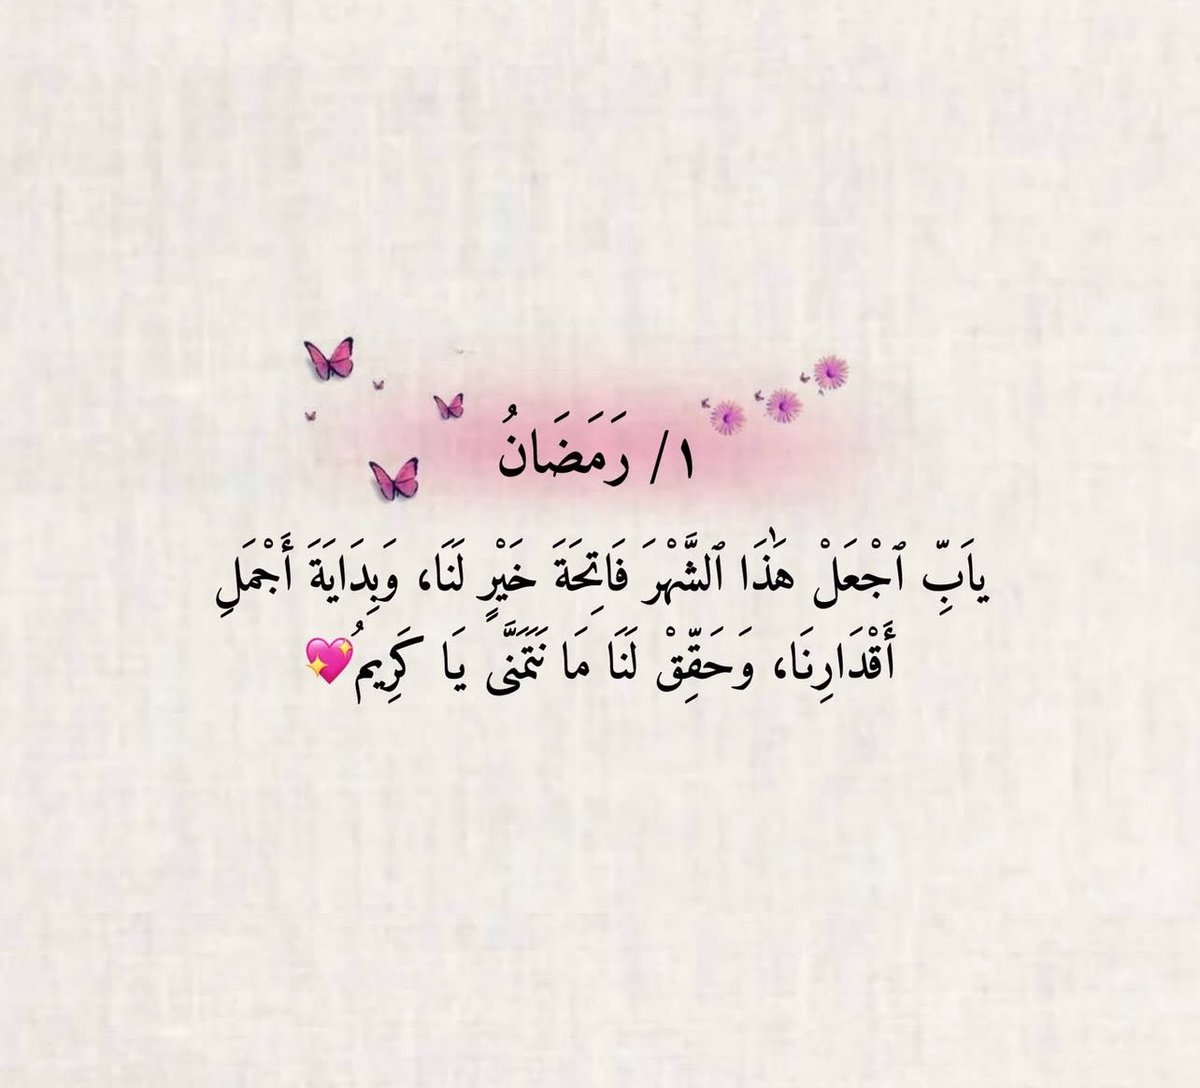 ١/ رَمَضَانُ
ياَبِّ ٱجْعَلْ هَٰذَا ٱلشَّهْرَ فَاتِحَةَ خَيْرٍ لَنَا، وَبِدَايَةَ أَجْمَلِ
أَقْدَارِنَا، وَحَقِّقْ لَنَا مَا نَتَمَنَّى يَا كَرِيمُ💖